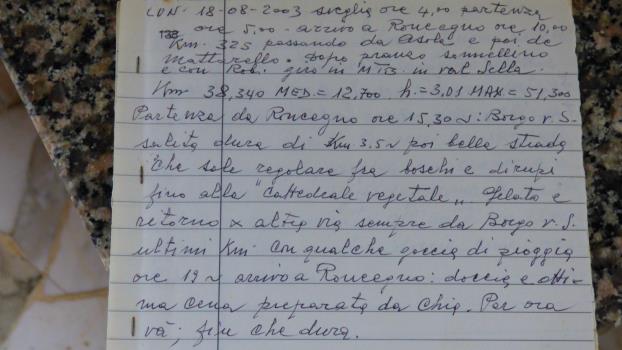 LUN. 18-08-2003 sveglia ore 4,00 partenza
ore 5,00 - arrivo a Roncegno ore 10,00
138 Km. 325 passando da Asola e poi da
Mattarello. Dopo pranzo sonnellino
e con Rob. giro in MTB. in val Sella.
Km 38,340 MED.= 12,700 h.= 3,01 MAX = 51,300
Partenza da Roncegno ore 15,30 ~: Borgo v. S.
salita dura di Km 3.5 ~ poi bella strada
che sale regolare fra boschi e dirupi
fino alla "Cattedrale vegetale" Gelato e
ritorno x altra via sempre da Borgo v. S.
ultimi Km. con qualche goccia di pioggia
ore 19 ~ arrivo a Roncegno: doccia e otti-
ma cena preparata da Chia. Per ora
va; fin che dura.